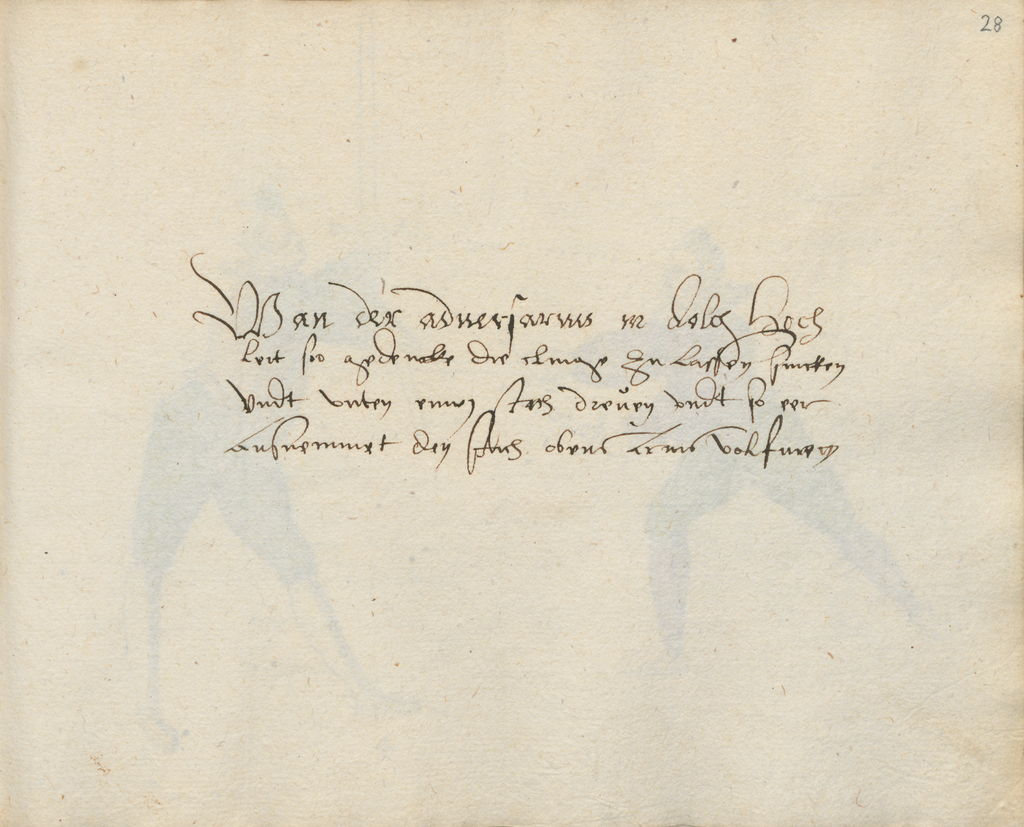 28
Wan der adversarius in dolch Hoch
leit so gedencke die clinge zu lassen sincken
vndt vnten einen stich dreuen vndt so eer
ausnemmet den stich obens arms volfuren